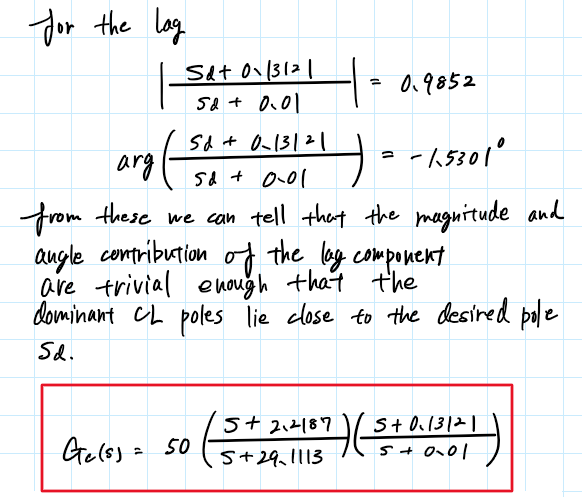 for the lag
| (sd + 0.13121) / (sd + 0.01) | = 0.9852
arg ( (sd + 0.13121) / (sd + 0.01) ) = -1.5301°
from these we can tell that the magnitude and
angle contribution of the lag component
are trivial enough that the
dominant CL poles lie close to the desired pole
sd.
Gc(s) = 50 ( (s + 2.2187) / (s + 29.1113) ) ( (s + 0.13121) / (s + 0.01) )